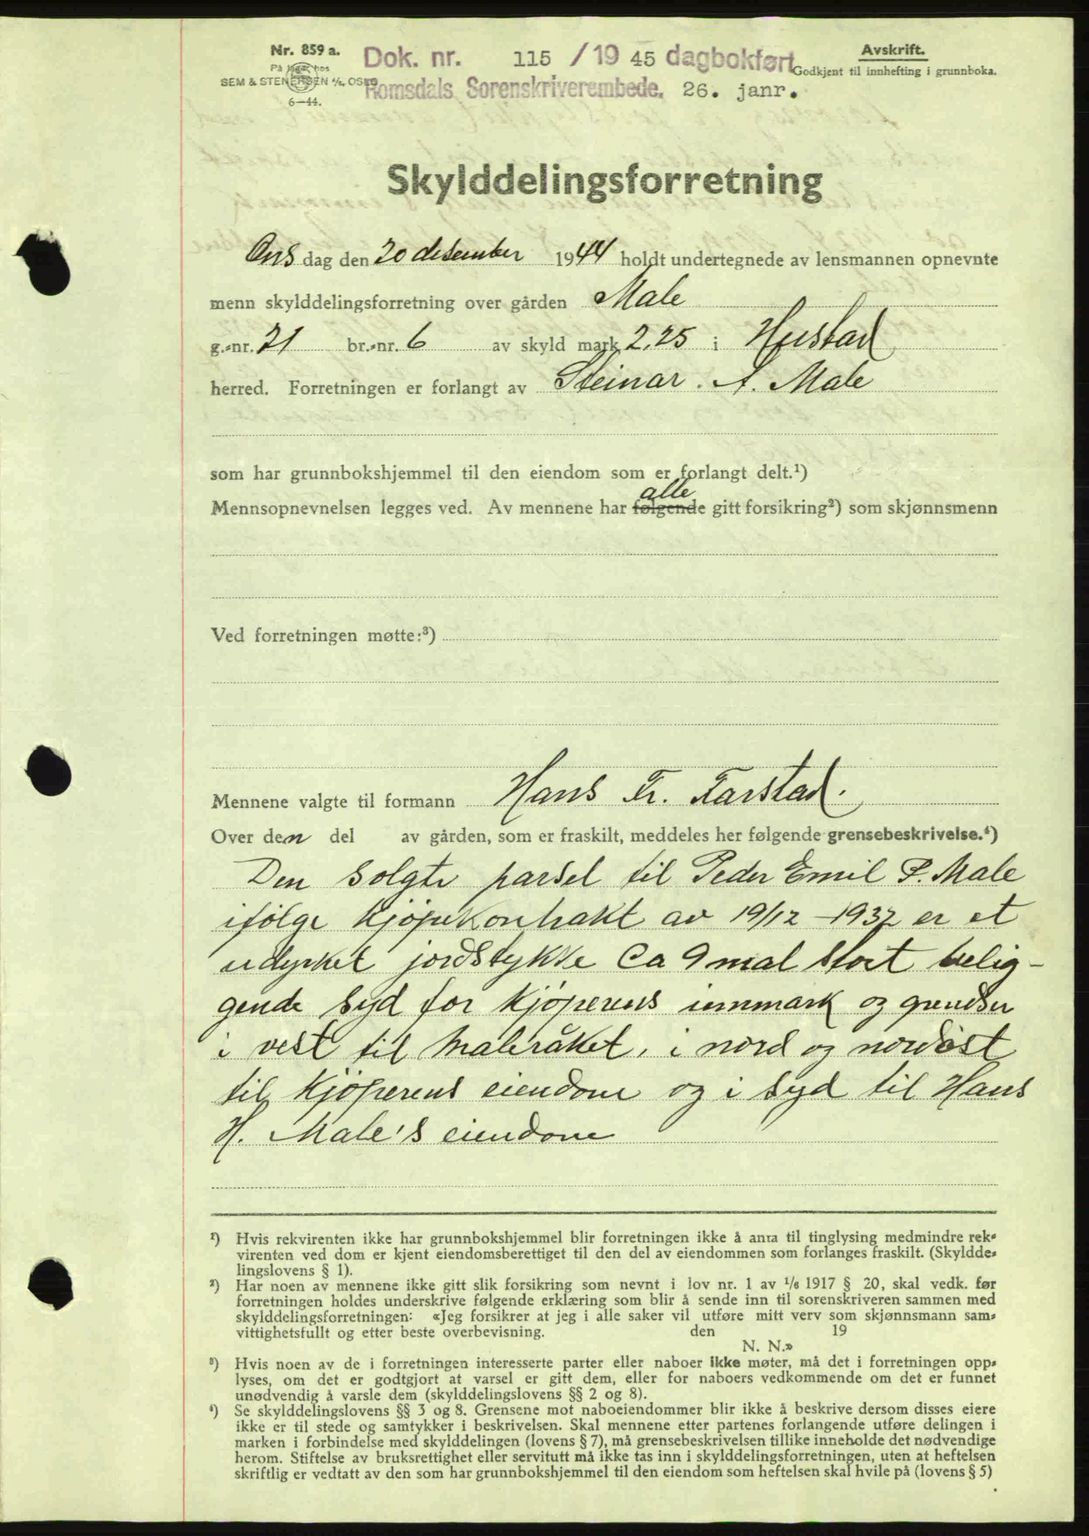 Nr. 859 a.
På lager hos
SEM & STENERSEN A/S, OSLO
6—44.
Dok. nr. 115 / 19 45 dagbokført
Romsdals Sorenskriverembede. 26. janr.
Avskrift.
Godkjent til innhefting i grunnboka.
Skylddelingsforretning
Ons dag den 20 desember 1944 holdt undertegnede av lensmannen opnevnte
menn skylddelingsforretning over gården Male
g.-nr. 21 br.-nr. 6 av skyld mark 2,25 i Hustad
herred. Forretningen er forlangt av Steinar. A. Male
som har grunnbokshjemmel til den eiendom som er forlangt delt.¹)
alle
Mennsopnevnelsen legges ved. Av mennene har følgende gitt forsikring²) som skjønnsmenn
Ved forretningen møtte:³)
Mennene valgte til formann Hans Fr. Farstad.
Over den del av gården, som er fraskilt, meddeles her følgende grensebeskrivelse.⁴)
Den solgte parsel til Peder Emil P. Male
ifølge kjøpekontrakt av 19/12 - 1932 er et
udyrket jordstykke Ca 9 mal stort belig-
gende syd for kjøperens innmark og grendser
i vest til Maleråket, i nord og nordøst
til kjøperens eiendom og i syd til Hans
H. Male's eiendom
¹) Hvis rekvirenten ikke har grunnbokshjemmel blir forretningen ikke å anta til tinglysing medmindre rek-
virenten ved dom er kjent eiendomsberettiget til den del av eiendommen som forlanges fraskilt. (Skyldde-
lingslovens § 1).
²) Har noen av mennene ikke gitt slik forsikring som nevnt i lov nr. 1 av 1/6 1917 § 20, skal vedk. før
forretningen holdes underskrive følgende erklæring som blir å sende inn til sorenskriveren sammen med
skylddelingsforretningen: «Jeg forsikrer at jeg i alle saker vil utføre mitt verv som skjønnsmann sam-
vittighetsfullt og etter beste overbevisning. den 19
N. N.»
³) Hvis noen av de i forretningen interesserte parter eller naboer ikke møter, må det i forretningen opp-
lyses, om det er godtgjort at varsel er gitt dem, eller for naboers vedkommende om det er funnet
unødvendig å varsle dem (skylddelingslovens §§ 2 og 8).
⁴) Se skylddelingslovens §§ 3 og 8. Grensene mot naboeiendommer blir ikke å beskrive dersom disses eiere
ikke er til stede og samtykker i beskrivelsen. Skal mennene etter partenes forlangende utføre delingen i
marken i forbindelse med skylddelingen (lovens § 7), må grensebeskrivelsen tillike inneholde det nødvendige
herom. Stiftelse av bruksrettighet eller servitutt må ikke tas inn i skylddelingsforretningen, uten at heftelsen
skriftlig er vedtatt av den som har grunnbokshjemmel til den eiendom som heftelsen skal hvile på (lovens § 5)